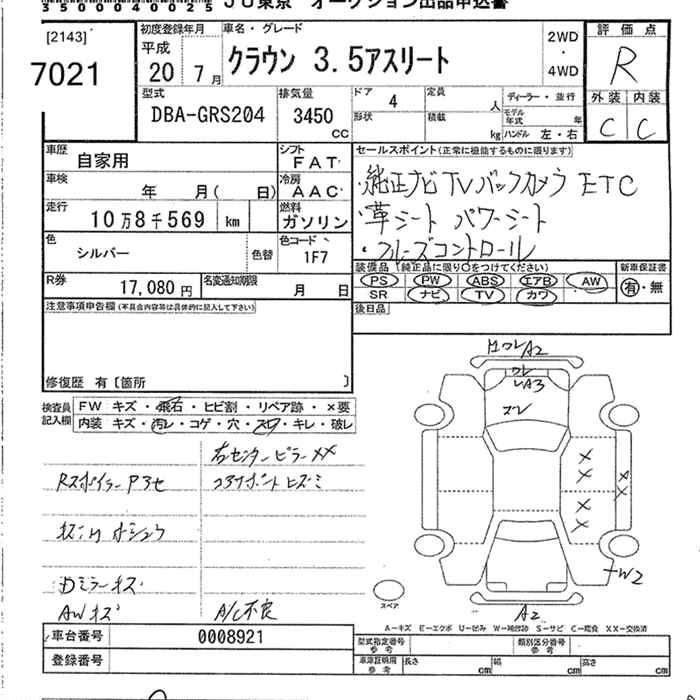 350004002５ JU東京 オークション出品申込書
[2143]
7021
初度登録年月
平成
20年 7月
車名・グレード
クラウン 3.5アスリート
2WD
・
4WD
評価点
R
外装 内装
C C
型式
DBA-GRS204
排気量
3450
CC
ドア 4
定員 人
形状
積載 kg
ディーラー・並行
モデル年式 年
ハンドル 左・右
車歴 自家用
シフト FAT
車検 年 月( 日)
冷房 AAC
走行 10万8千569 km
燃料 ガソリン
色 シルバー 色替
色コード 1F7
R券 17,080円
名変通知期限 月 日
セールスポイント(正常に機能するものに限ります)
・純正ナビ TV バックカメラ ETC
・革シート パワーシート
・クルーズコントロール
装備品(純正品に限り○をつけてください)
PS PW ABS エアB AW
SR ナビ TV カワ
新車保証書
有・無
後日品
注意事項申告欄(不具合内容等は具体的に記入して下さい)
修復歴 有〔箇所 〕
検査員記入欄
FW キズ・飛石・ヒビ割・リペア跡・×要
内装 キズ・汚レ・コゲ・穴・スレ・キレ・破レ
右センターピラーXX
Rスポイラー
コアサポートヒズミ
Dミラーキズ
AWキズ
A/C不良
A2
A3
W2
A2
スペア
A-キズ E-エクボ U-凹み W-補修跡 S-サビ C-腐食 XX-交換済
車台番号 0008921
登録番号
型式指定番号
参考
類別区分番号
参考
車庫証明用
参考
長さ cm 幅 cm 高さ cm